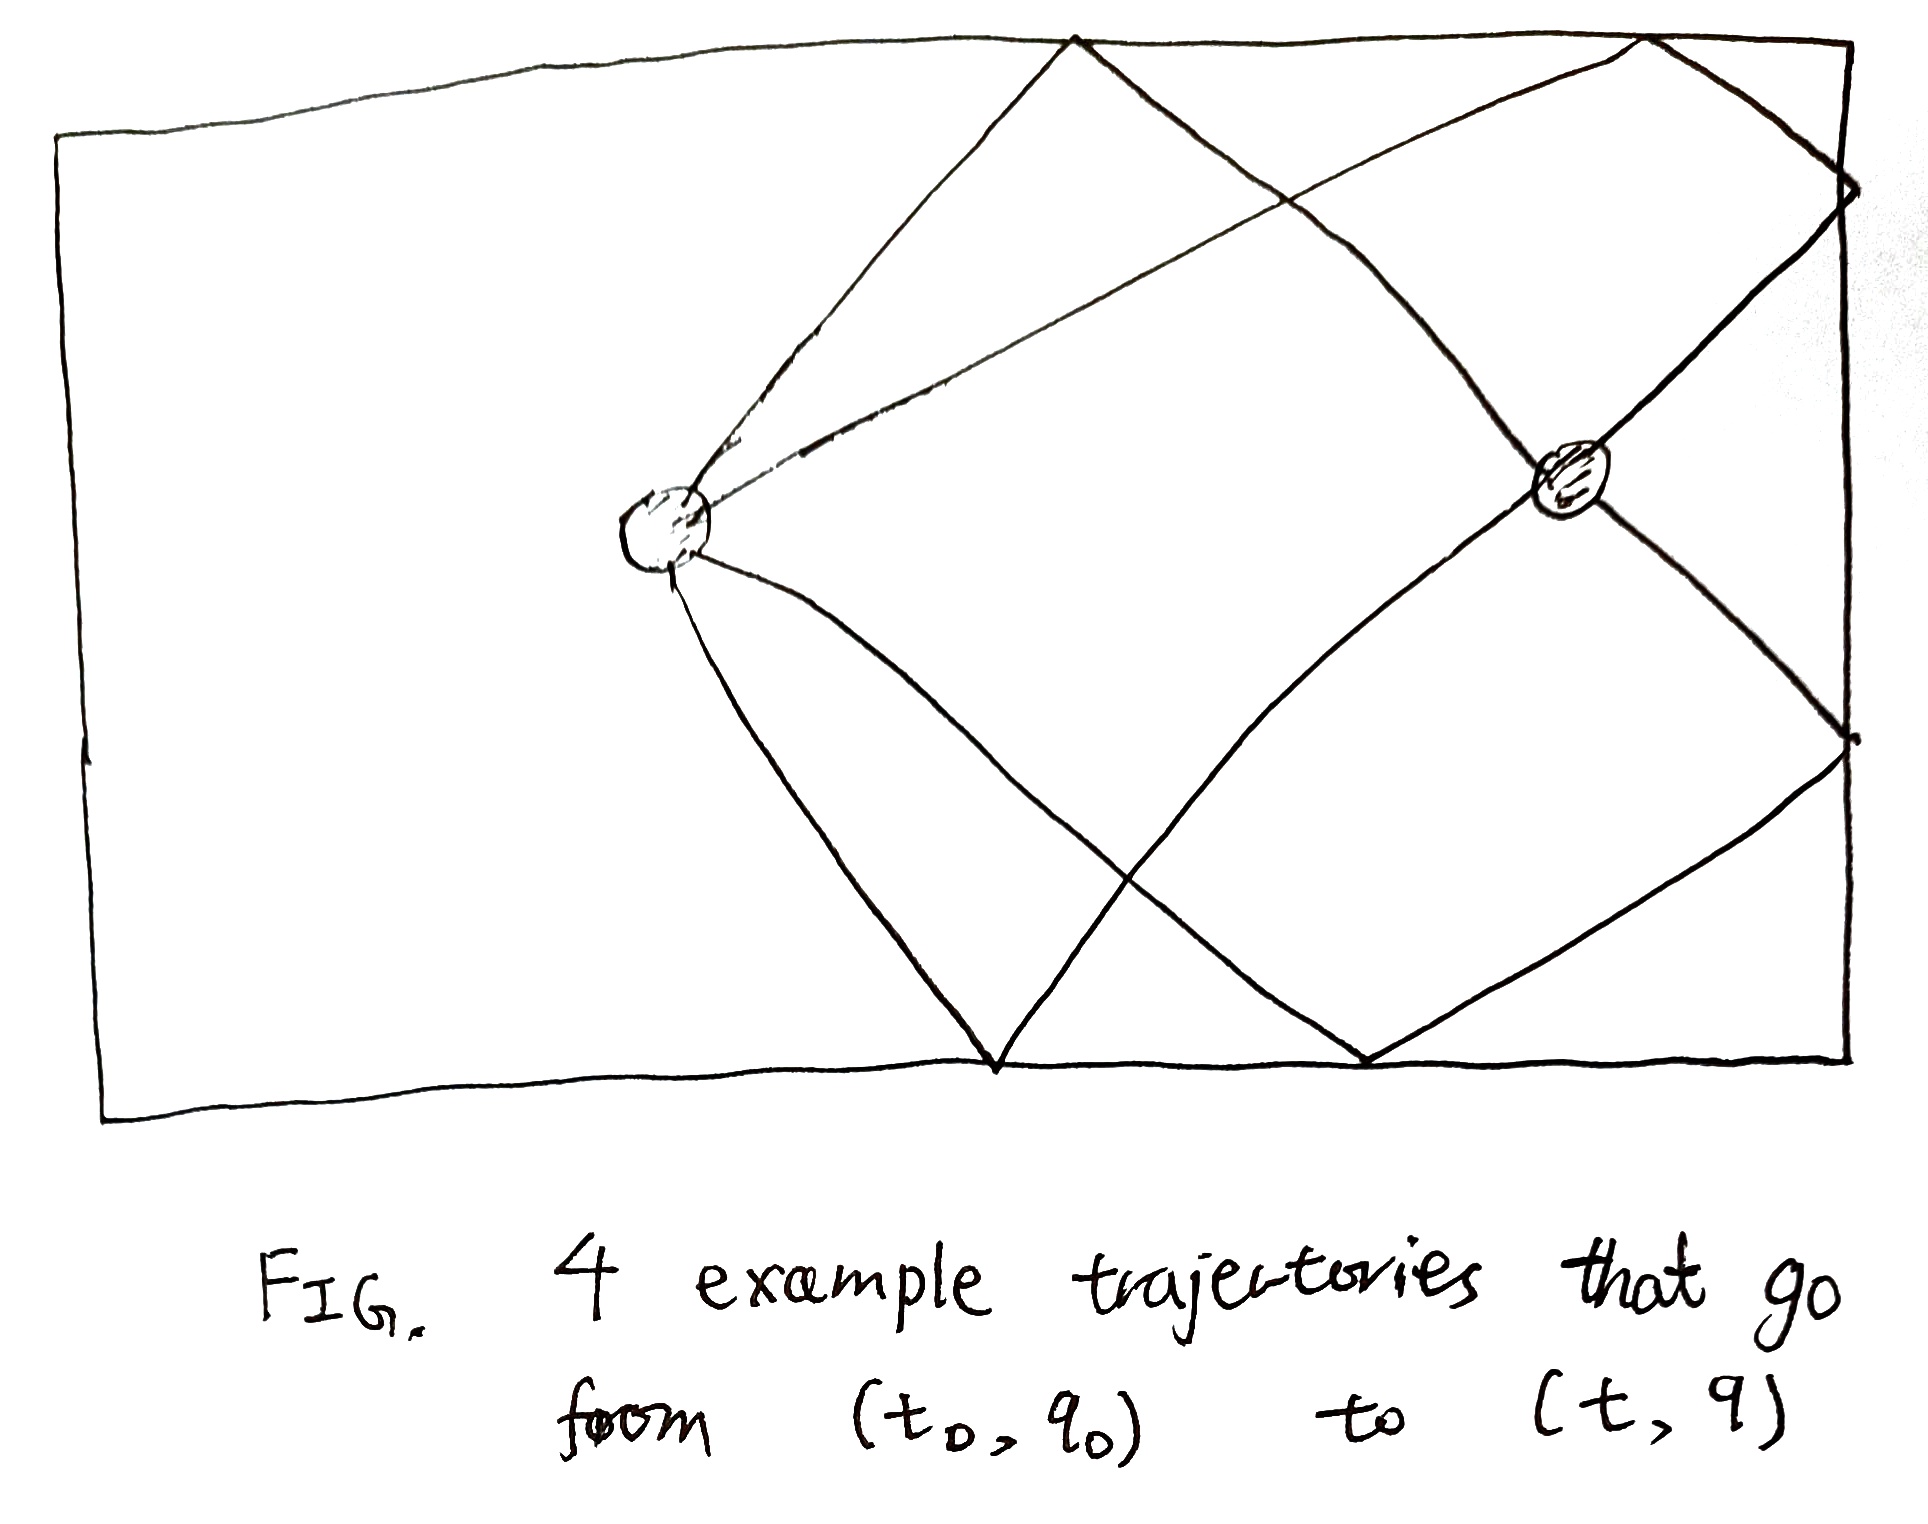 FIG. 4 example trajectories that go
from (t₀, q₀) to (t, q)